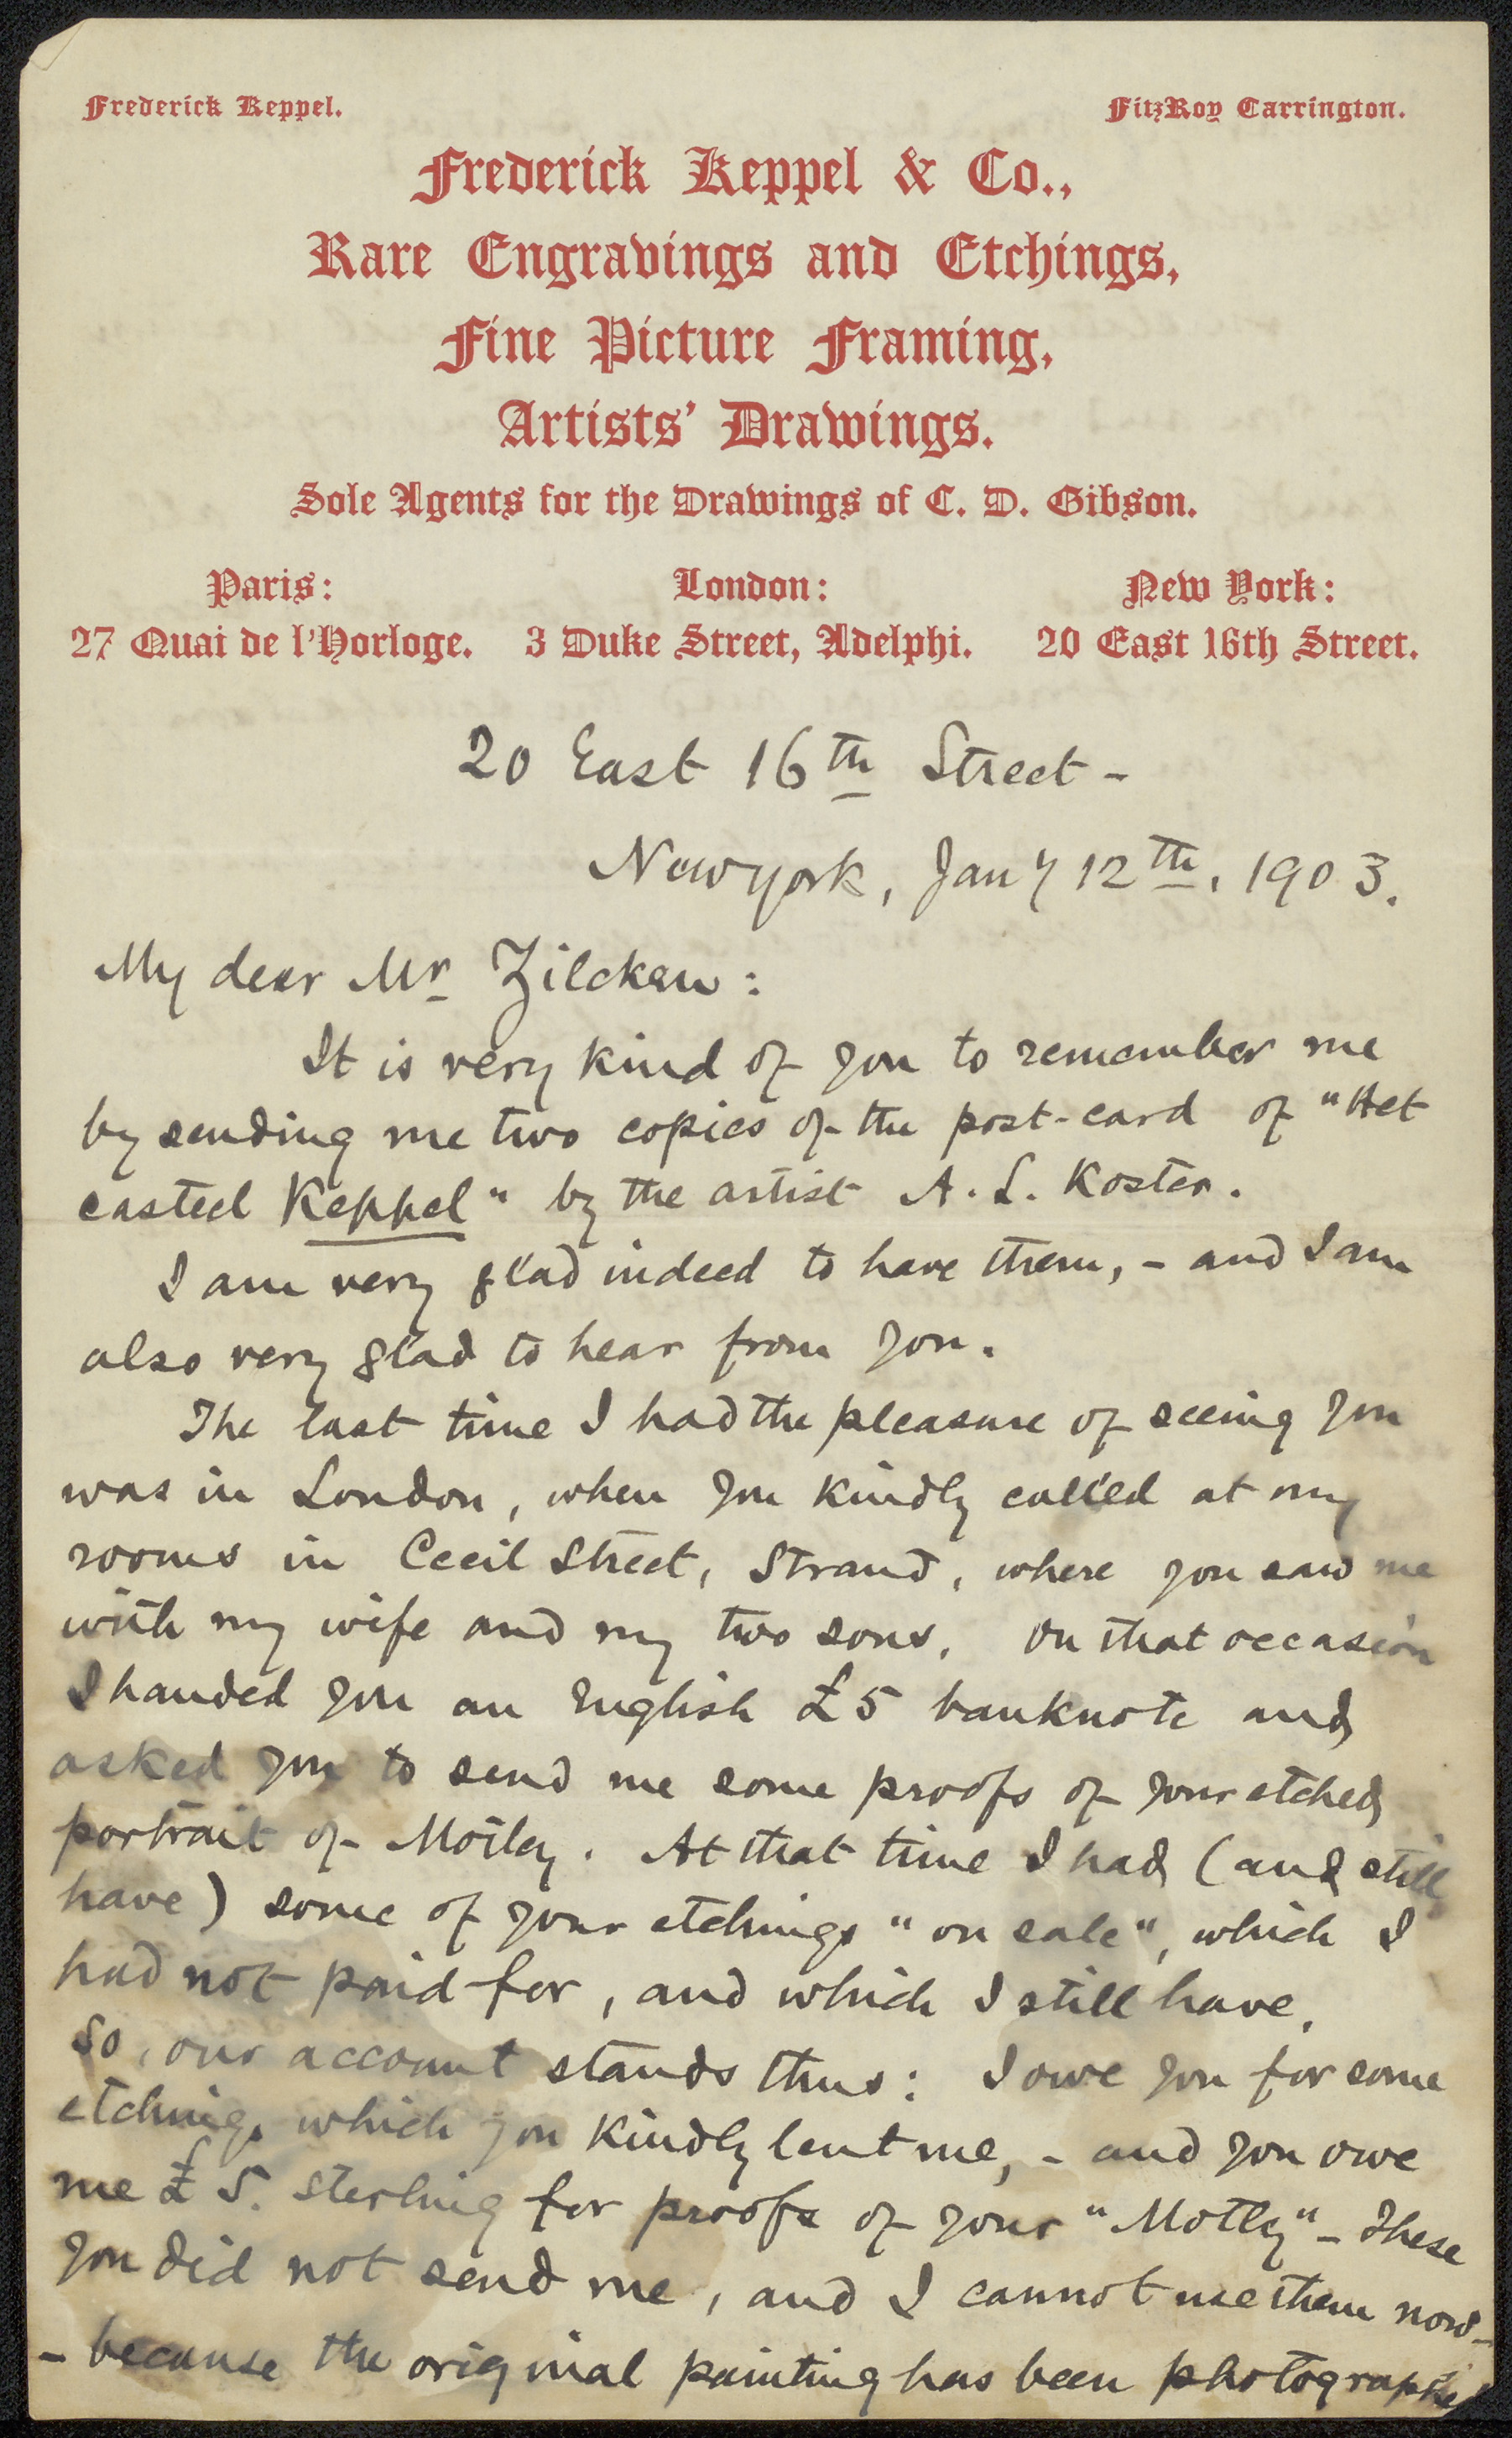 Frederick Keppel.
FitzRoy Carrington.
Frederick Keppel & Co.,
Rare Engravings and Etchings,
Fine Picture Framing,
Artists' Drawings.
Sole Agents for the Drawings of C. D. Gibson.
Paris: London: New York:
27 Quai de l'Horloge. 3 Duke Street, Adelphi. 20 East 16th Street.
20 East 16th Street -
New York, Jany 12th, 1903.
My dear Mr Zilcken:
It is very kind of you to remember me
by sending me two copies of the post-card of "Het
casteel Keppel" by the artist A. L. Koster.
I am very glad indeed to have them, - and I am
also very glad to hear from you.
The last time I had the pleasure of seeing you
was in London, when you kindly called at my
rooms in Cecil Street, Strand, where you saw me
with my wife and my two sons. On that occasion
I handed you an English £5 banknote and
asked you to send me some proofs of your etched
portrait of Motley. At that time I had (and still
have) some of your etchings "on sale", which I
had not paid for, and which I still have.
So, our account stands thus: I owe you for some
etchings which you kindly lent me, - and you owe
me £5. sterling for proofs of your "Motley" - These
you did not send me, and I cannot use them now -
- because the original painting has been photographed